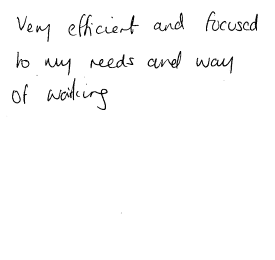 Very efficient and focused
to my needs and way
of working